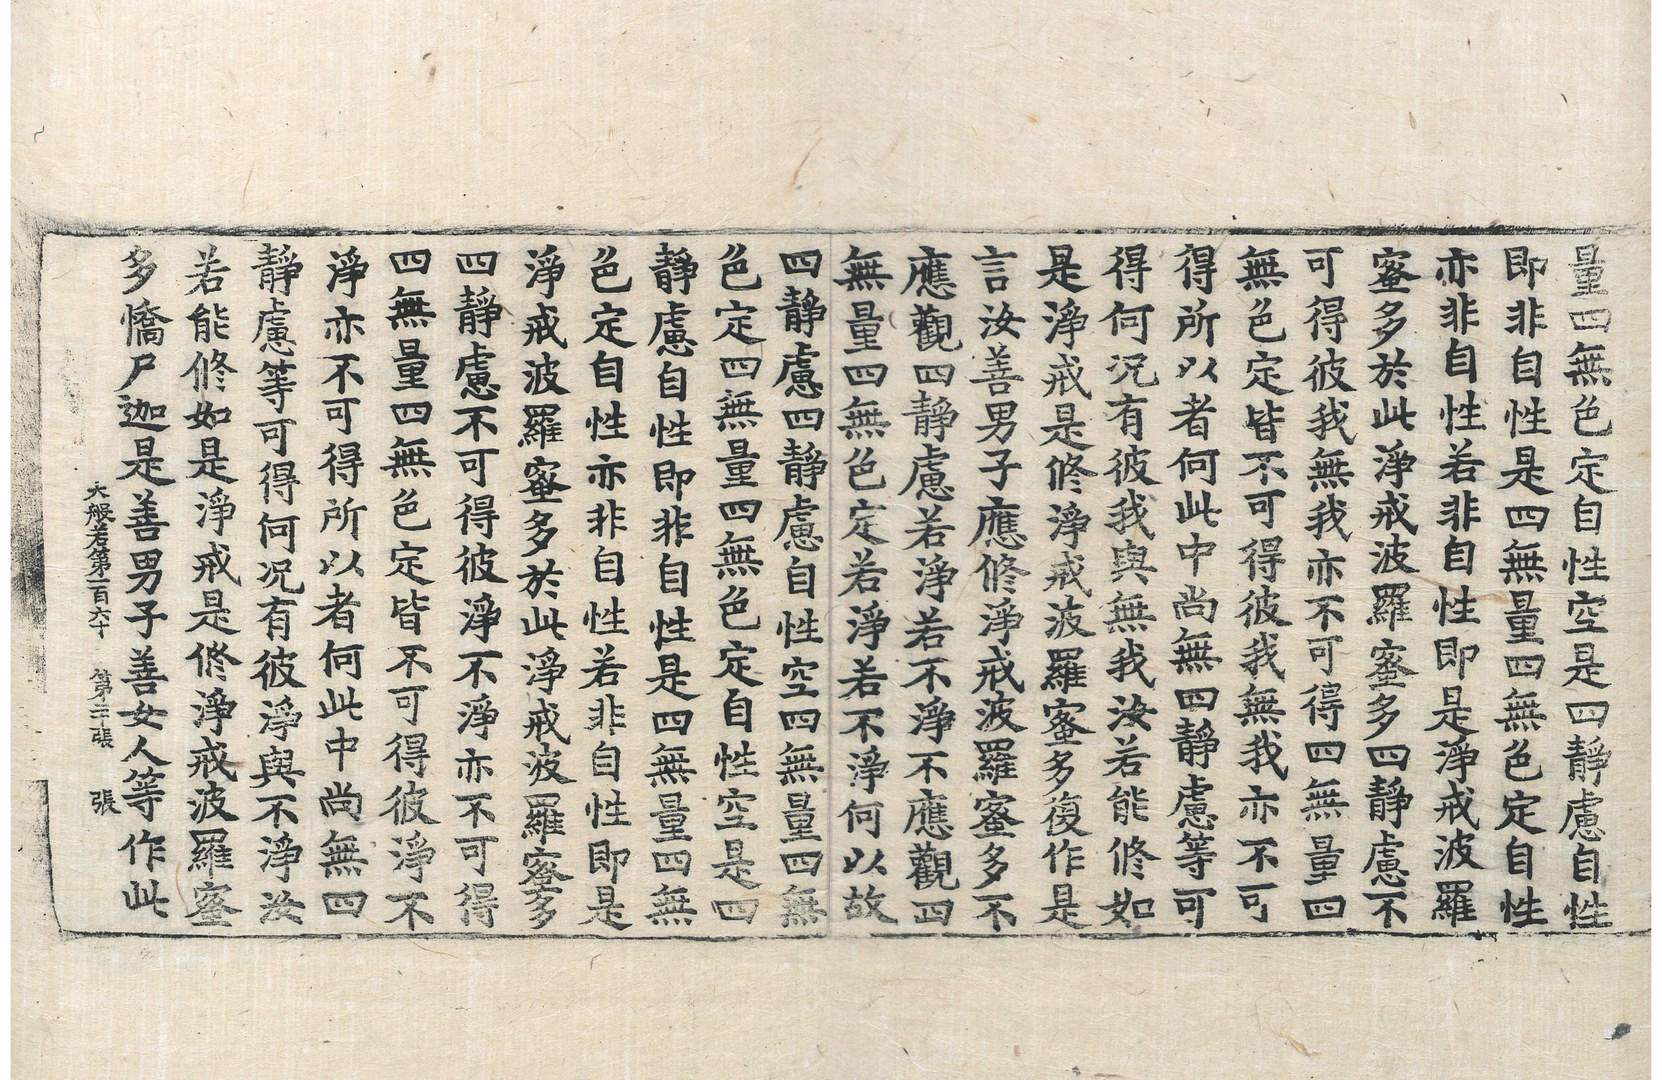 量四無色定自性空是四靜慮自性
即非自性是四無量四無色定自性
亦非自性若非自性即是淨戒波羅
蜜多於此淨戒波羅蜜多四靜慮不
可得彼我無我亦不可得四無量四
無色定皆不可得彼我無我亦不可
得所以者何此中尚無四靜慮等可
得何况有彼我與無我汝若能修如
是淨戒是修淨戒波羅蜜多復作是
言汝善男子應修淨戒波羅蜜多不
應觀四靜慮若淨若不淨不應觀四
無量四無色定若淨若不淨何以故
四靜慮四靜慮自性空四無量四無
色定四無量四無色定自性空是四
靜慮自性即非自性是四無量四無
色定自性亦非自性若非自性即是
淨戒波羅蜜多於此淨戒波羅蜜多
四靜慮不可得彼淨不淨亦不可得
四無量四無色定皆不可得彼淨不
淨亦不可得所以者何此中尚無四
靜慮等可得何况有彼淨與不淨汝
若能修如是淨戒是修淨戒波羅蜜
多憍尸迦是善男子善女人等作此
大般若第一百六十 第 張 張